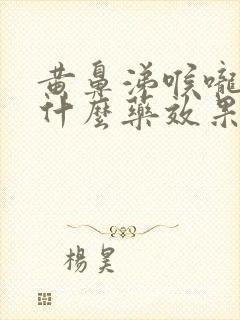 黄鼻涕喉嚨
什麼藥效果
楊昊